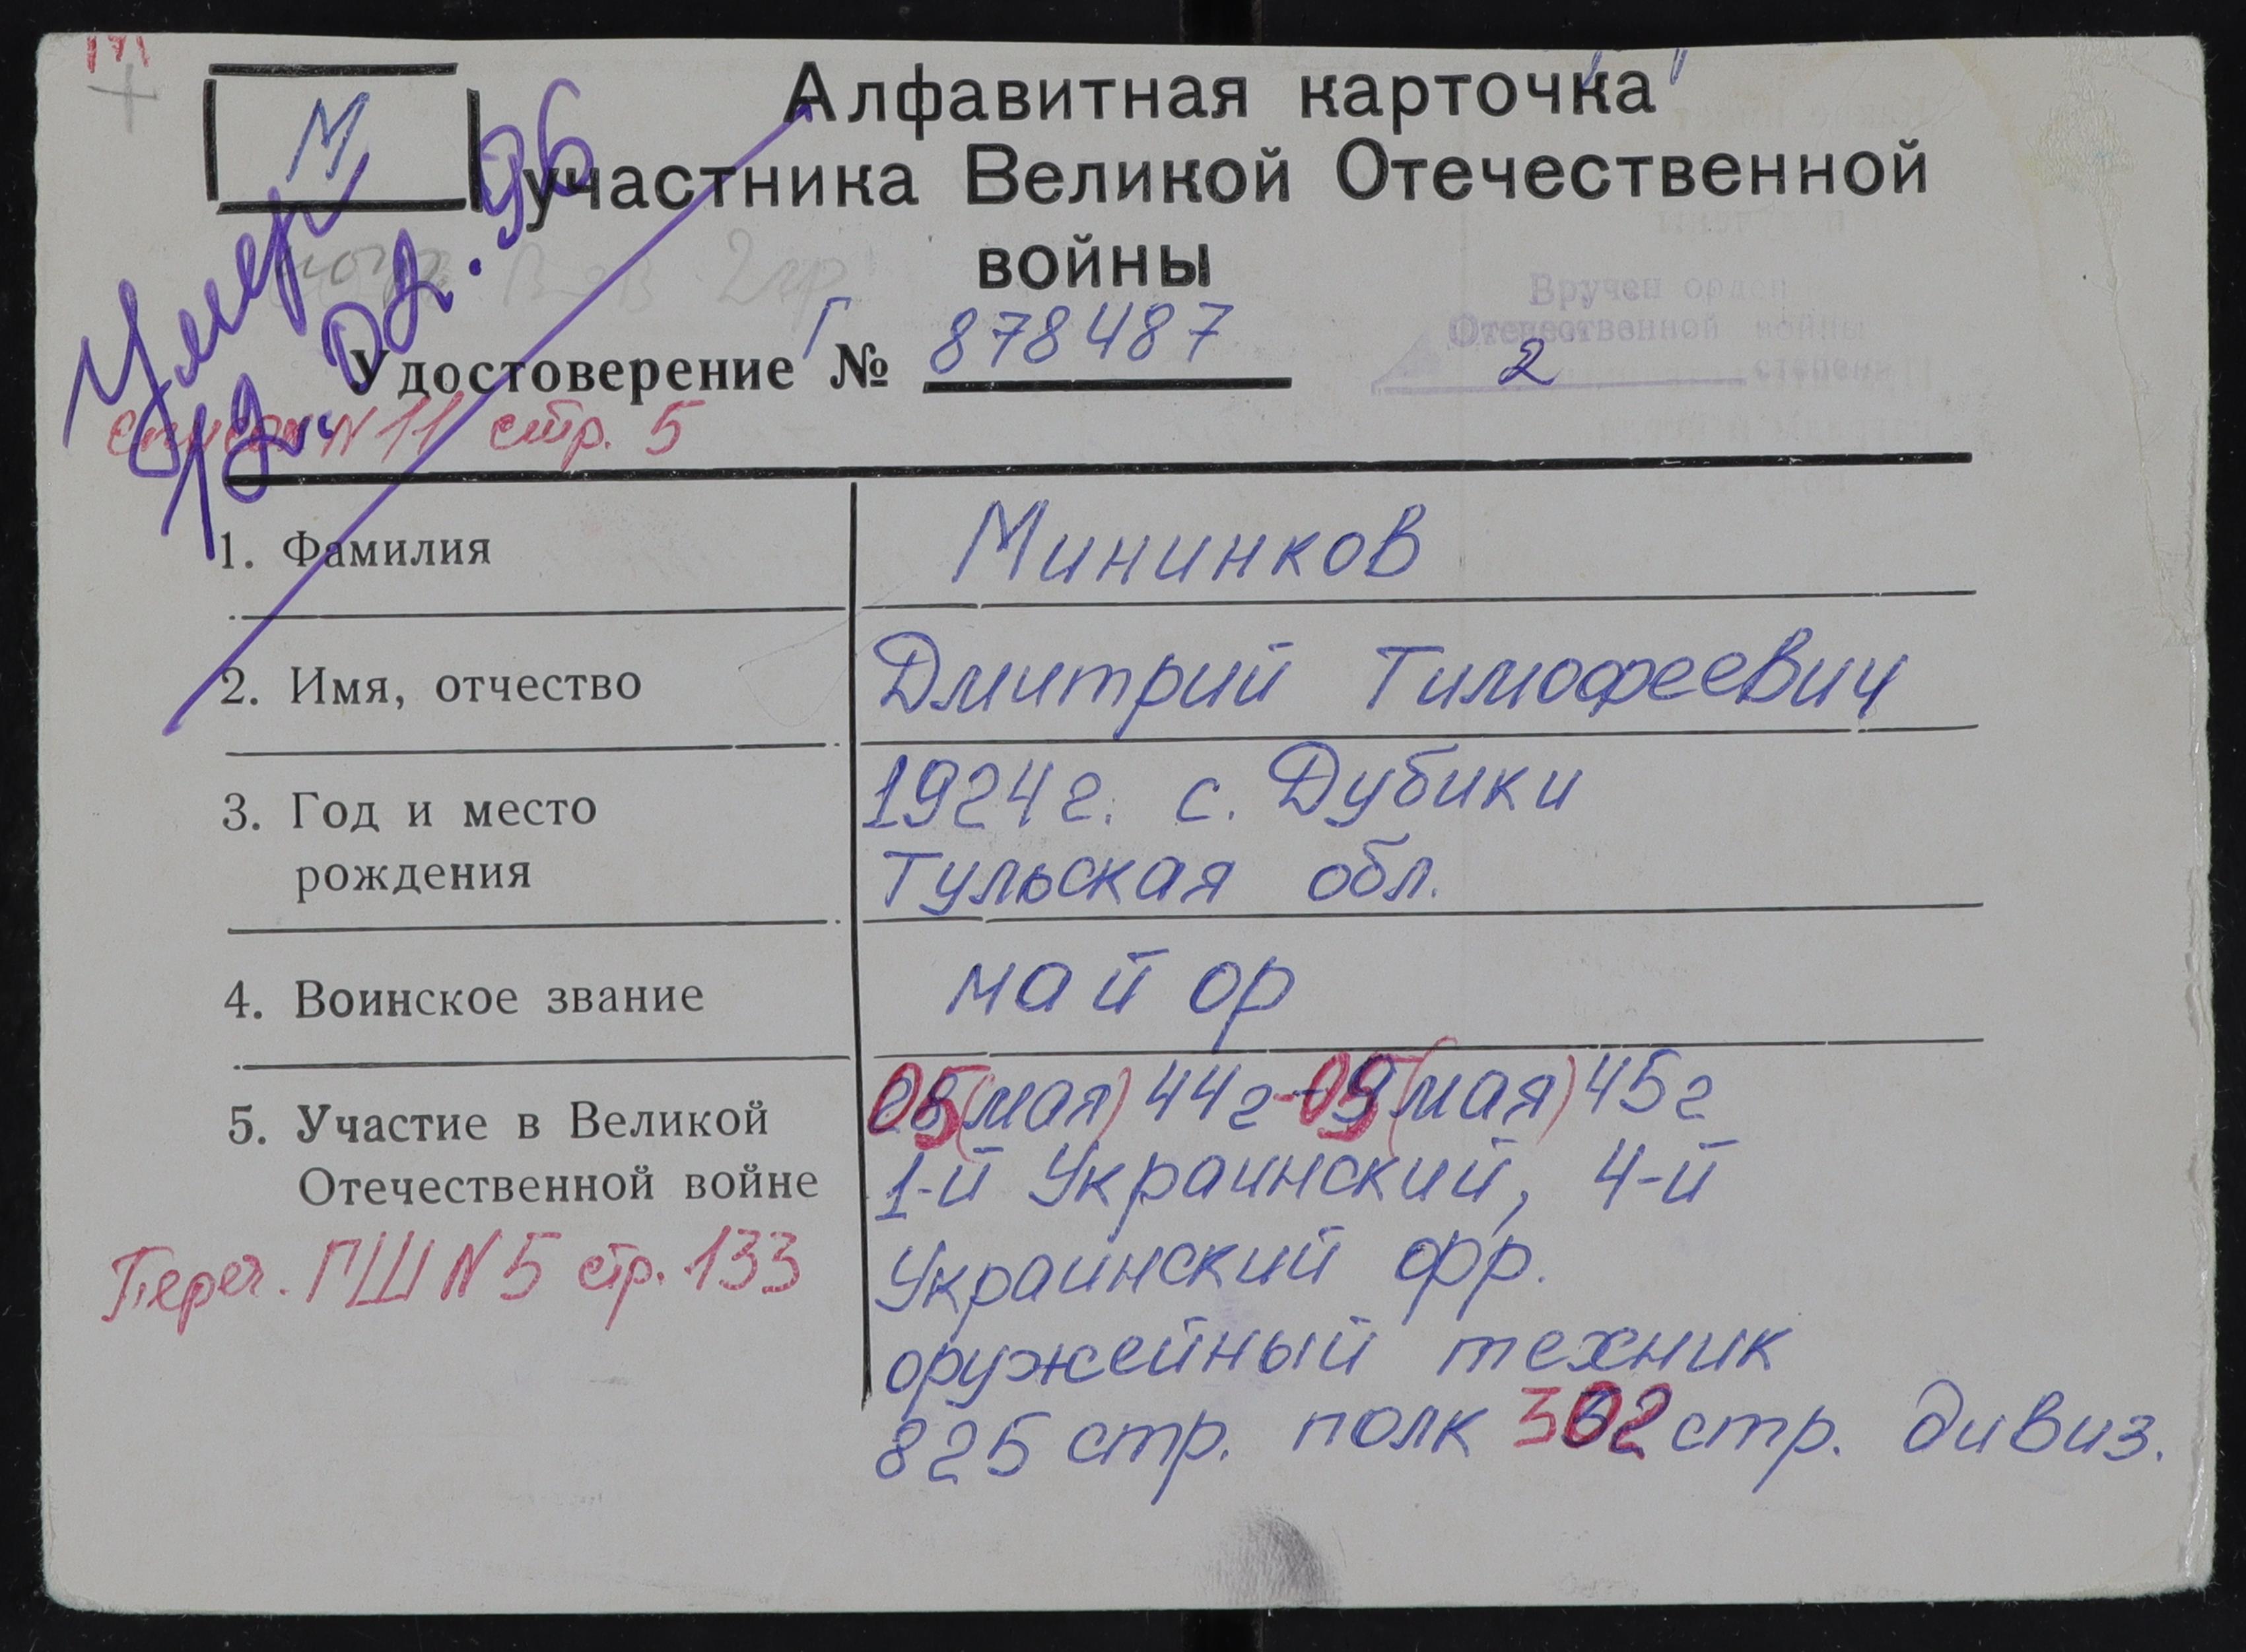 М
Алфавитная карточка
участника Великой Отечественной
войны
Умер
12. 02. 96
2 гр.
Удостоверение Г № 878487
Вручен орден
Отечественной войны
2 степени
список N 11 стр. 5
1. Фамилия
Мининков
2. Имя, отчество
Дмитрий Тимофеевич
3. Год и место
рождения
1924 г. с. Дубики
Тульская обл.
4. Воинское звание
майор
5. Участие в Великой
Отечественной войне
05 (мая) 44 г - 09 (мая) 45 г
1-й Украинский, 4-й
Украинский фр.
оружейный техник
825 стр. полк 302 стр. дивиз.
Переч. ГШ N 5 стр. 133